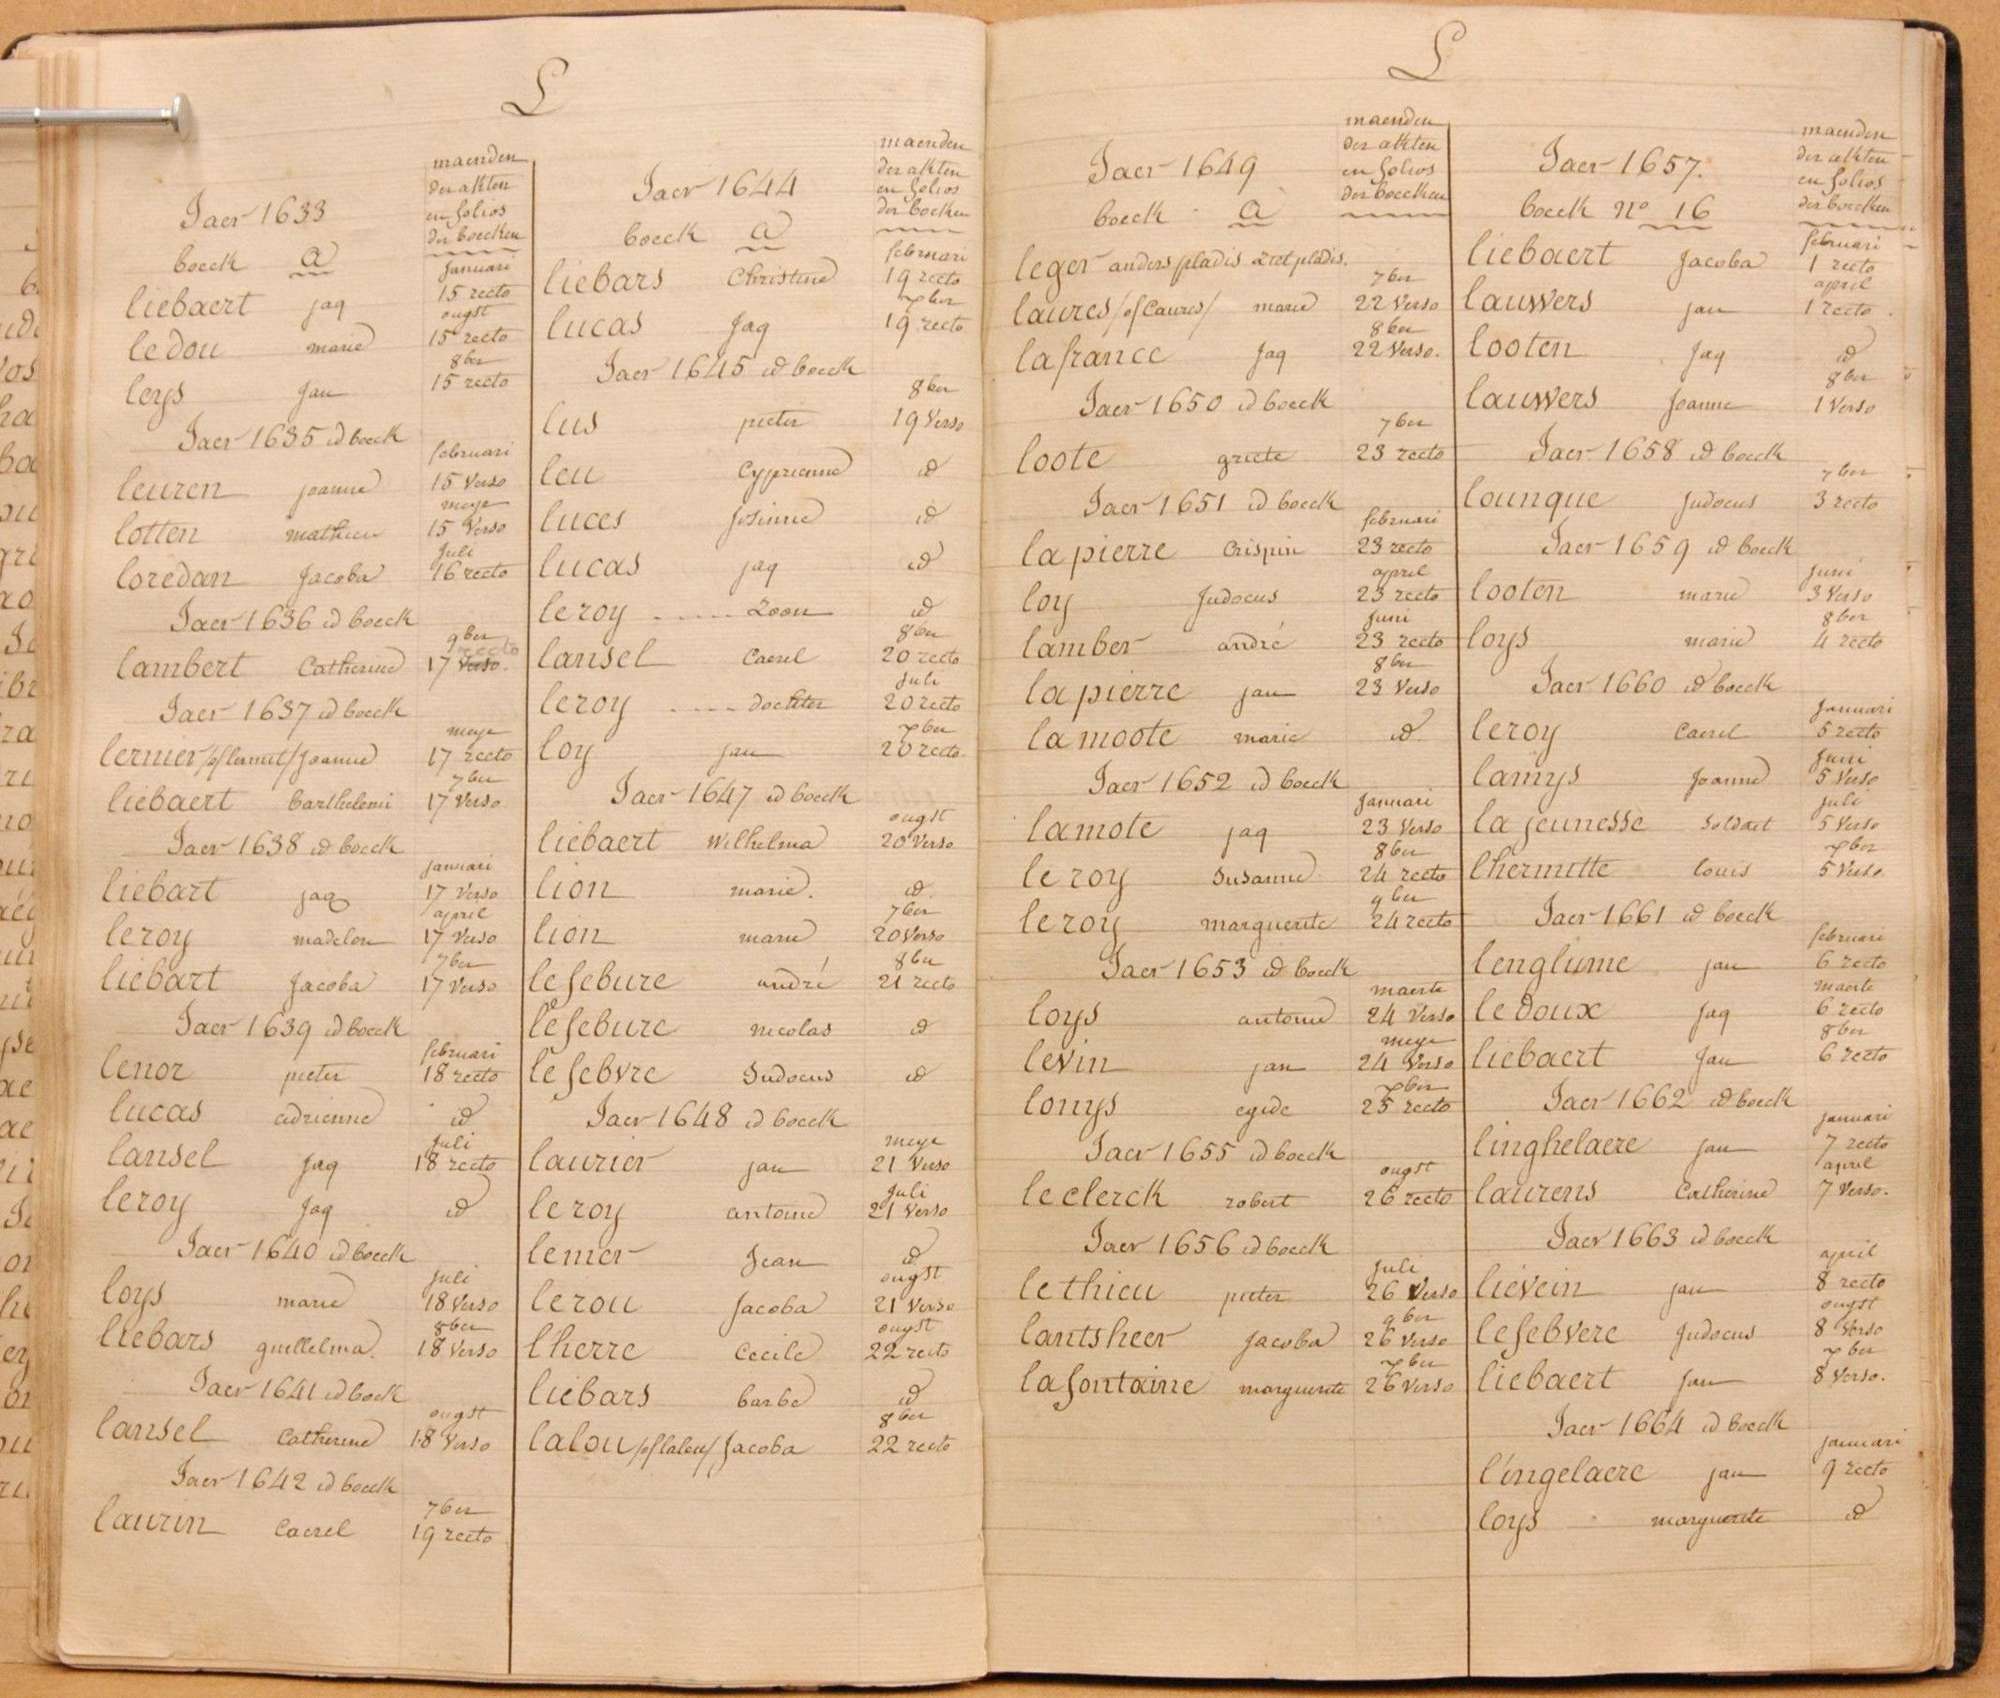 L
Jaer 1633
maenden
der akten
en folios
der boecken
boeck a
januari
liebaert jaq 15 recto
ougst
ledou marie 15 recto
8ber
leys jan 15 recto
Jaer 1635 id boeck
februari
leuren joanne 15 Verso
meye
lotten mathieu 15 Verso
juli
loredan jacoba 16 recto
Jaer 1636 id boeck
9ber
recto
lambert Catherine 17 Verso.
Jaer 1637 id boeck
meye
lernier /of lermit/ joanne 17 recto
7ber
liebaert barthelemi 17 Verso
Jaer 1638 id boeck
januari
liebart jaq 17 Verso
april
leroy madelon 17 Verso
7ber
liebart jacoba 17 Verso
Jaer 1639 id boeck
februari
lenor pieter 18 recto
lucas adrienne id
juli
lansel jaq 18 recto
leroy jaq id
Jaer 1640 id boeck
juli
loys marie 18 Verso
8ber
liebars guillelma. 18 Verso
Jaer 1641 id boek
ougst
lansel Catherine 18 Verso
Jaer 1642 id boeck
7ber
laurin Caerel 19 recto
Jaer 1644
maenden
der akten
en folios
der boeken
boeck a
februari
liebars Christine 19 recto
7ber
lucas jaq 19 recto
Jaer 1645 id boeck
8ber
lus pieter 19 Verso
leu Cyprienne id
luces josinne id
lucas jaq id
leroy .... zoon id
8ber
lansel Caerel 20 recto
juli
leroy .... dochter 20 recto
7ber
loy jan 20 recto
Jaer 1647 id boeck
ougst
liebaert Wilhelma 20 Verso
lion marie. id
7ber
lion marie 20 Verso
8ber
lefebure andré 21 recto
lefebure nicolas id
lefebvre Judocus id
Jaer 1648 id boeck
meye
laurier jan 21 Verso
juli
leroy antoine 21 Verso
lemer Jean id
ougst
lerou jacoba 21 Verso
ougst
lherre Cecile 22 recto
liebars barbe id
8ber
lalou /of laleu/ Jacoba 22 recto
L
Jaer 1649
maenden
der akten
en folios
der boecken
boeck a
leger anders /pladis zietpladis.
7ber
laures /of Caures/ marie 22 Verso
8ber
lafrance jaq 22 Verso.
Jaer 1650 id boeck
7ber
loote griete 23 recto
Jaer 1651 id boeck
februari
lapierre Crispin 23 recto
april
loy Judocus 23 recto
juni
lamber andré 23 recto
8ber
lapierre jan 23 Verso
lamoote marie id
Jaer 1652 id boeck
januari
lamote jaq 23 Verso
8ber
leroy Susanne 24 recto
9ber
leroy marguerite 24 recto
Jaer 1653 id boeck
maerte
loys antoine 24 Verso
meye
levin jan 24 Verso
7ber
lonys egide 25 recto
Jaer 1655 id boeck
ougst
leclerck robert 26 recto
Jaer 1656 id boeck
juli
lethieu pieter 26 Verso
9ber
lantsheer jacoba 26 Verso
7ber
lafontaine marguerite 26 Verso
Jaer 1657.
maenden
der akten
en folios
der boecken
boeck No 16
februari
liebaert jacoba 1 recto
april
lauwers jan 1 recto.
looten jaq id
8ber
lauwers joanne 1 Verso
Jaer 1658 id boeck
7ber
lounque Judocus 3 recto
Jaer 1659 id boeck
juni
looten marie 3 Verso
8ber
loys marie 4 recto
Jaer 1660 id boeck
januari
leroy Caerel 5 recto
juni
lamys joanne 5 Verso
juli
la jeunesse Soldaet 5 Verso
7ber
lhermitte louis 5 Verso
Jaer 1661 id boeck
februari
lenglume jan 6 recto
maerte
ledoux jaq 6 recto
8ber
liebaert jan 6 recto
Jaer 1662 id boeck
januari
linghelaere jan 7 recto
april
laurens Catherine 7 Verso.
Jaer 1663 id boeck
april
liévein jan 8 recto
ougst
lefebvere Judocus 8 Verso
7ber
liebaert jan 8 Verso.
Jaer 1664 id boeck
januari
l'ingelaere jan 9 recto
loys marguerite id